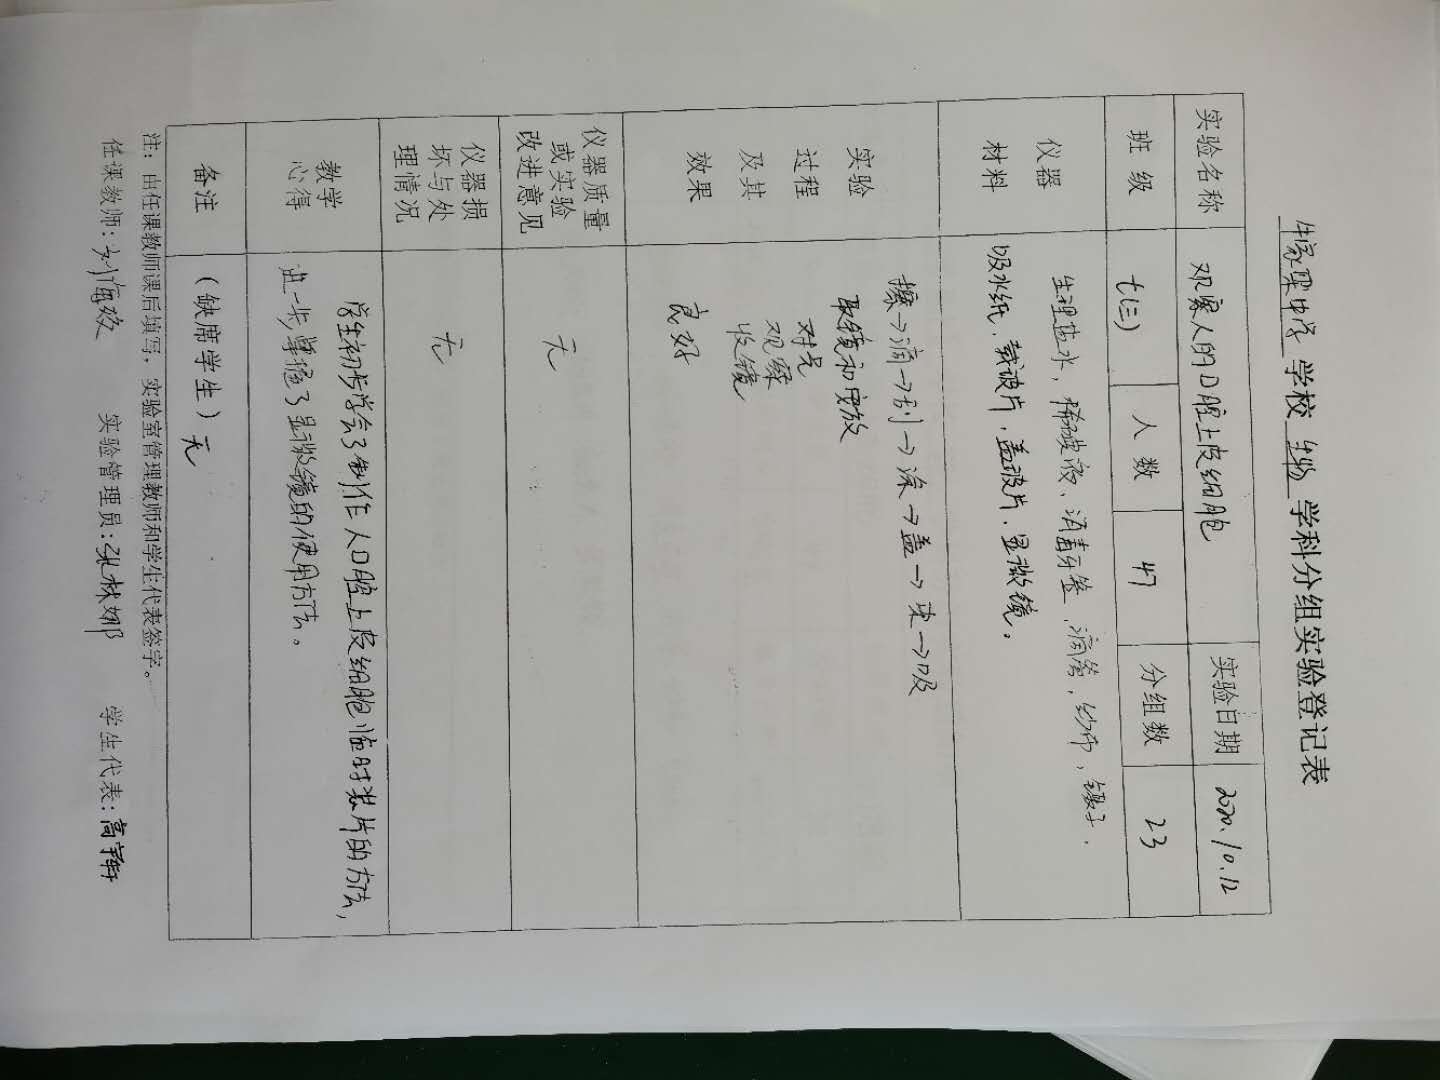 牛家梁中学 学校 生物 学科分组实验登记表
实验名称 观察人的口腔上皮细胞 实验日期 2020.10.12
班 级 七(三) 人 数 47 分组数 23
仪器
材料
生理盐水，稀碘液、消毒牙签，滴管，纱布，镊子.
吸水纸．载玻片，盖玻片．显微镜。
实验
过程
及其
效果
擦→滴→刮→涂→盖→染→吸
取镜和安放
对光
观察
收镜
良好
仪器质量
或实验
改进意见
无
仪器损
坏与处
理情况
无
教学
心得
学生初步学会了制作人口腔上皮细胞临时装片的方法，
进一步掌握了显微镜的使用方法。
备注 (缺席学生) 无
注：由任课教师课后填写，实验室管理教师和学生代表签字。
任课教师: 刘海 实验管理员: 张林娜 学生代表: 高宇轩